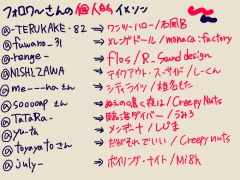 フォロワーさんの個人的イメソン
@-TERUKAKE-82 → ワンツー・ハロー/石風呂
@fuwaro_31 → メレンゲドール/monaca:factory
@-renge- → flos/R-Sound design
@NISHIZAWA → テイクアウト・スーサイド/しーくん
@me----na さん → シティライツ/椎名もた
@sooooapさん → 蛆の鳴く夜は/Creepy Nuts
@TaTaRa- → 臨海ダイバー/うみろ
@yu-ta → メンヘナード/しじま
@toyayatoさん → だがそれでいい/Creepy nuts
@july- → ボイリング・ナイト/Mi8k